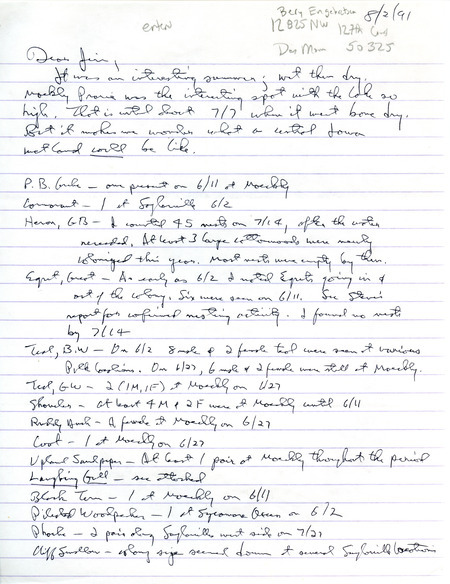 enter
8/2/91
12825 NW 127th
50325
Dear Jim,
It was an interesting summer; wet then dry.
Moeckly Prairie was the interesting spot with the lake so
high. That is until about 7/7 when it went bone dry.
But it makes me wonder what a central Iowa
wetland could be like.
P.B. Grebe - one present on 6/11 at Moeckly
Cormorant - 1 at Saylorville 6/2
Heron, GB - I counted 45 nests on 7/14, after the water
receded. At least 3 large cottonwoods were newly
colonized this year. Most nests were empty by then.
Egret, Great - As early as 6/2 I noted Egrets going in &
out of the colony. Six were seen on 6/11. See Steve's
report for confirmed nesting activity. I found no nests
by 7/14
Teal, B.W - On 6/2 8 male & 2 female teal were seen at various
Polk locations. On 6/27, 6 male & 2 female were still at Moeckly.
Teal, GW - 2 (1M, 1F) at Moeckly on 6/27
Shoveler - at least 4 M & 2 F were at Moeckly until 6/11
Ruddy Duck - A female at Moeckly on 6/27
Coot - 1 at Moeckly on 6/27
Upland Sandpiper - At least 1 pair at Moeckly throughout the period
Laughing Gull - see attached
Black Tern - 1 at Moeckly on 6/11
Pileated Woodpecker - 1 at Sycamore Access on 6/2
Phoebe - 2 pair along Saylorville west side on 7/27
Cliff Swallow - colony size seemed down at several Saylorville locations